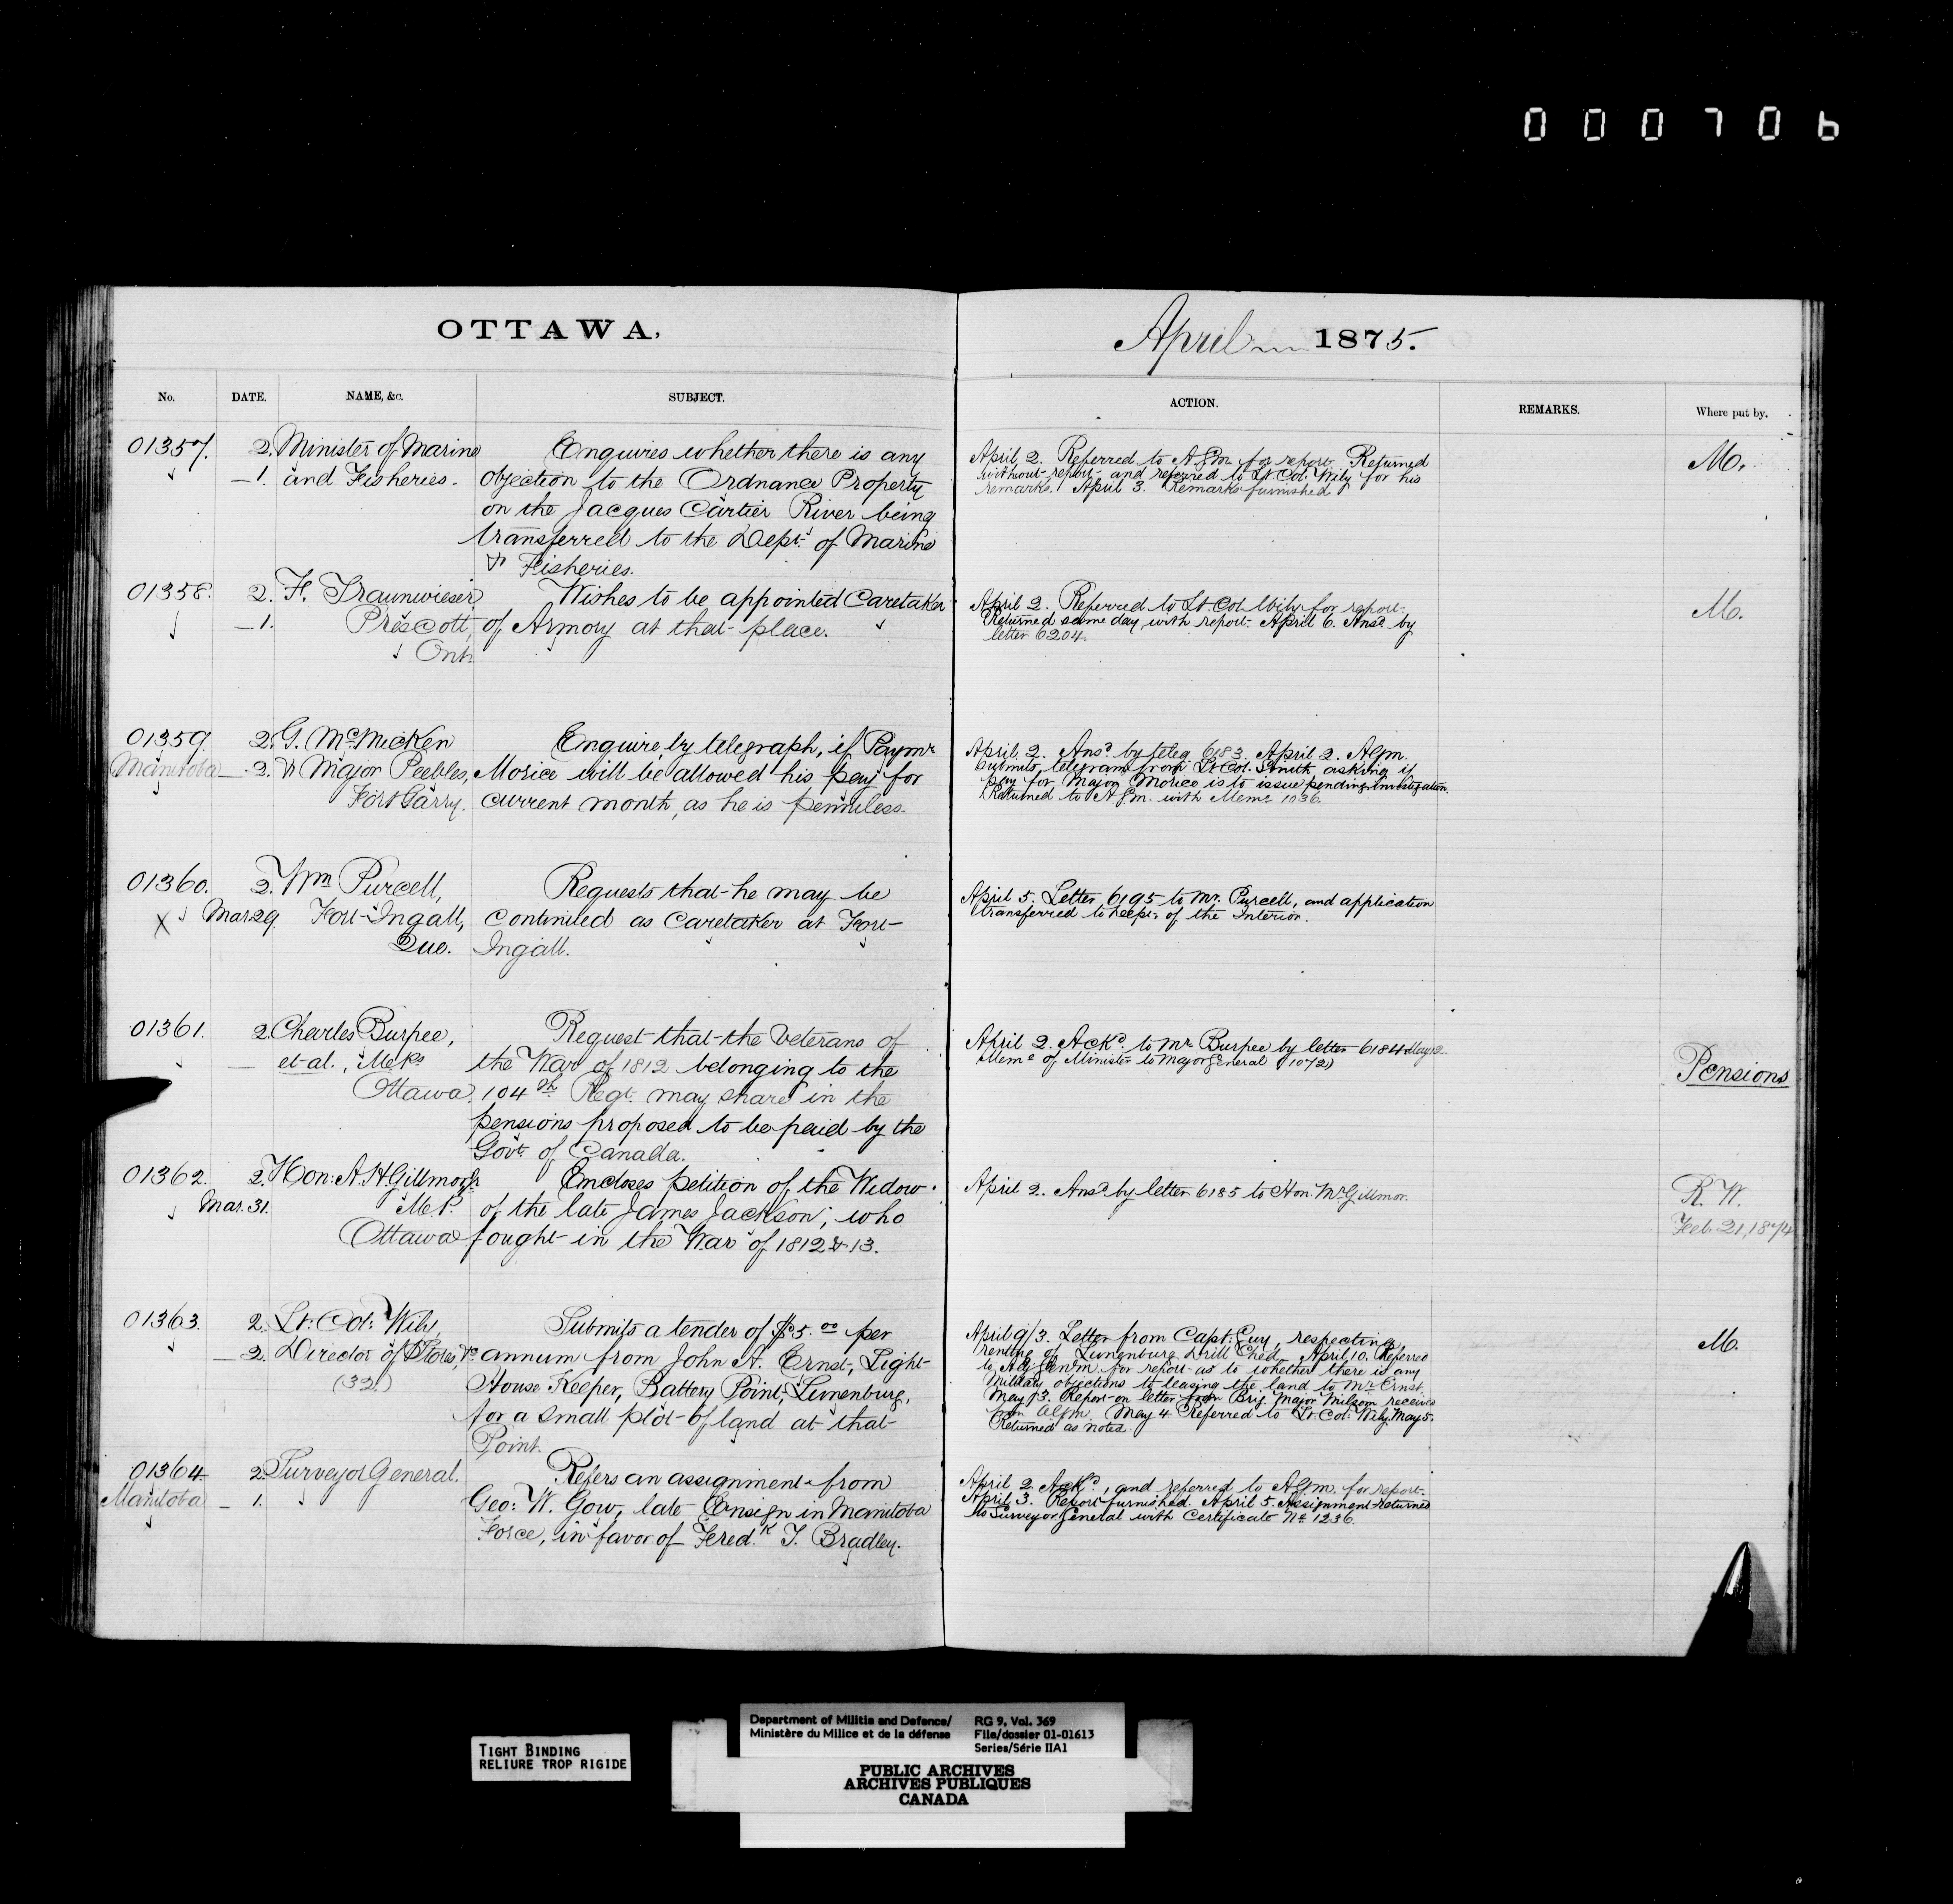 000706
OTTAWA,
April 1875.
No. DATE. NAME, &c. SUBJECT. ACTION. REMARKS. Where put by.
01357. 2. Minister of Marine
— 1. and Fisheries.
Enquires whether there is any
objection to the Ordnance Property
on the Jacques Cartier River being
transferred to the Dept. of Marine
& Fisheries.
April 2. Referred to AGm. for report. Returned
without report and referred to Lt Col. Wily for his
remarks. April 3. Remarks furnished
M.
01358. 2. F. Traunwieser
— 1. Prescott,
Ont.
Wishes to be appointed Caretaker
of Armory at that place.
April 2. Referred to Lt. Col Wily for report.
Returned same day, with report. April 6. Ansd. by
letter 6204.
M.
01359. 2. G. McMicken
Manitoba — 2. & Major Peebles,
Fort Garry.
Enquire by telegraph, if Paymr
Morice will be allowed his pay for
current month, as he is penniless.
April 2. Ansd. by teleg. 6183. April 2. AGm.
submits telegram from Lt Col. Smith asking if
pay for Major Morice is to issue pending investigation.
Returned to AGm. with Memo. 1036.
01360. 2. Wm Purcell,
X Mar 29. Fort Ingall,
Que.
Requests that he may be
continued as Caretaker at Fort
Ingall.
April 5. Letter 6195 to Mr. Purcell, and application
transferred to Dept. of the Interior.
01361. 2. Charles Burpee,
— et al., M.Ps
Ottawa.
Request that the Veterans of
the War of 1812 belonging to the
104th Regt. may share in the
pensions proposed to be paid by the
Govt. of Canada.
April 2. Ackd. to Mr Burpee by letter 6184
Memo of Minister to Major General (1072)
Pensions
01362. 2. Hon: A. H. Gillmor Jr
Mar. 31. M.P.
Ottawa
Encloses petition of the Widow
of the late James Jackson, who
fought in the War of 1812 & 13.
April 2. Ansd. by letter 6185 to Hon. Mr Gillmor.
R. W.
Feb. 21, 1874
01363. 2. Lt: Col: Wily,
— 2. Director of Stores, &c
(32.)
Submits a tender of $5.00 per
annum from John A. Ernst, Light-
House Keeper, Battery Point, Lunenburg,
for a small plot of land at that
Point.
April 9/3. Letter from Capt. Guy, respecting
renting of Lunenburg Drill Shed. April 10. Referred
to Adj Genm. for report as to whether there is any
Military objections to leasing the land to Mr Ernst.
May 3. Report on letter from Brig. Major Milsom received
from AGm. May 4 Referred to Lt Col: Wily. May 5.
Returned as noted.
M.
01364. 2. Surveyor General.
Manitoba — 1.
Refers an assignment from
Geo: W. Gow, late Ensign in Manitoba
Force, in favor of Fredk T. Bradley.
April 2. Ackd., and referred to AGm. for report.
April 3. Report furnished. April 5. Assignment returned
to Surveyor General with Certificate No 1236.
TIGHT BINDING
RELIURE TROP RIGIDE
Department of Militia and Defence/
Ministère du Milice et de la défense
RG 9, Vol. 369
File/dossier 01-01613
Series/Série IIA1
PUBLIC ARCHIVES
ARCHIVES PUBLIQUES
CANADA